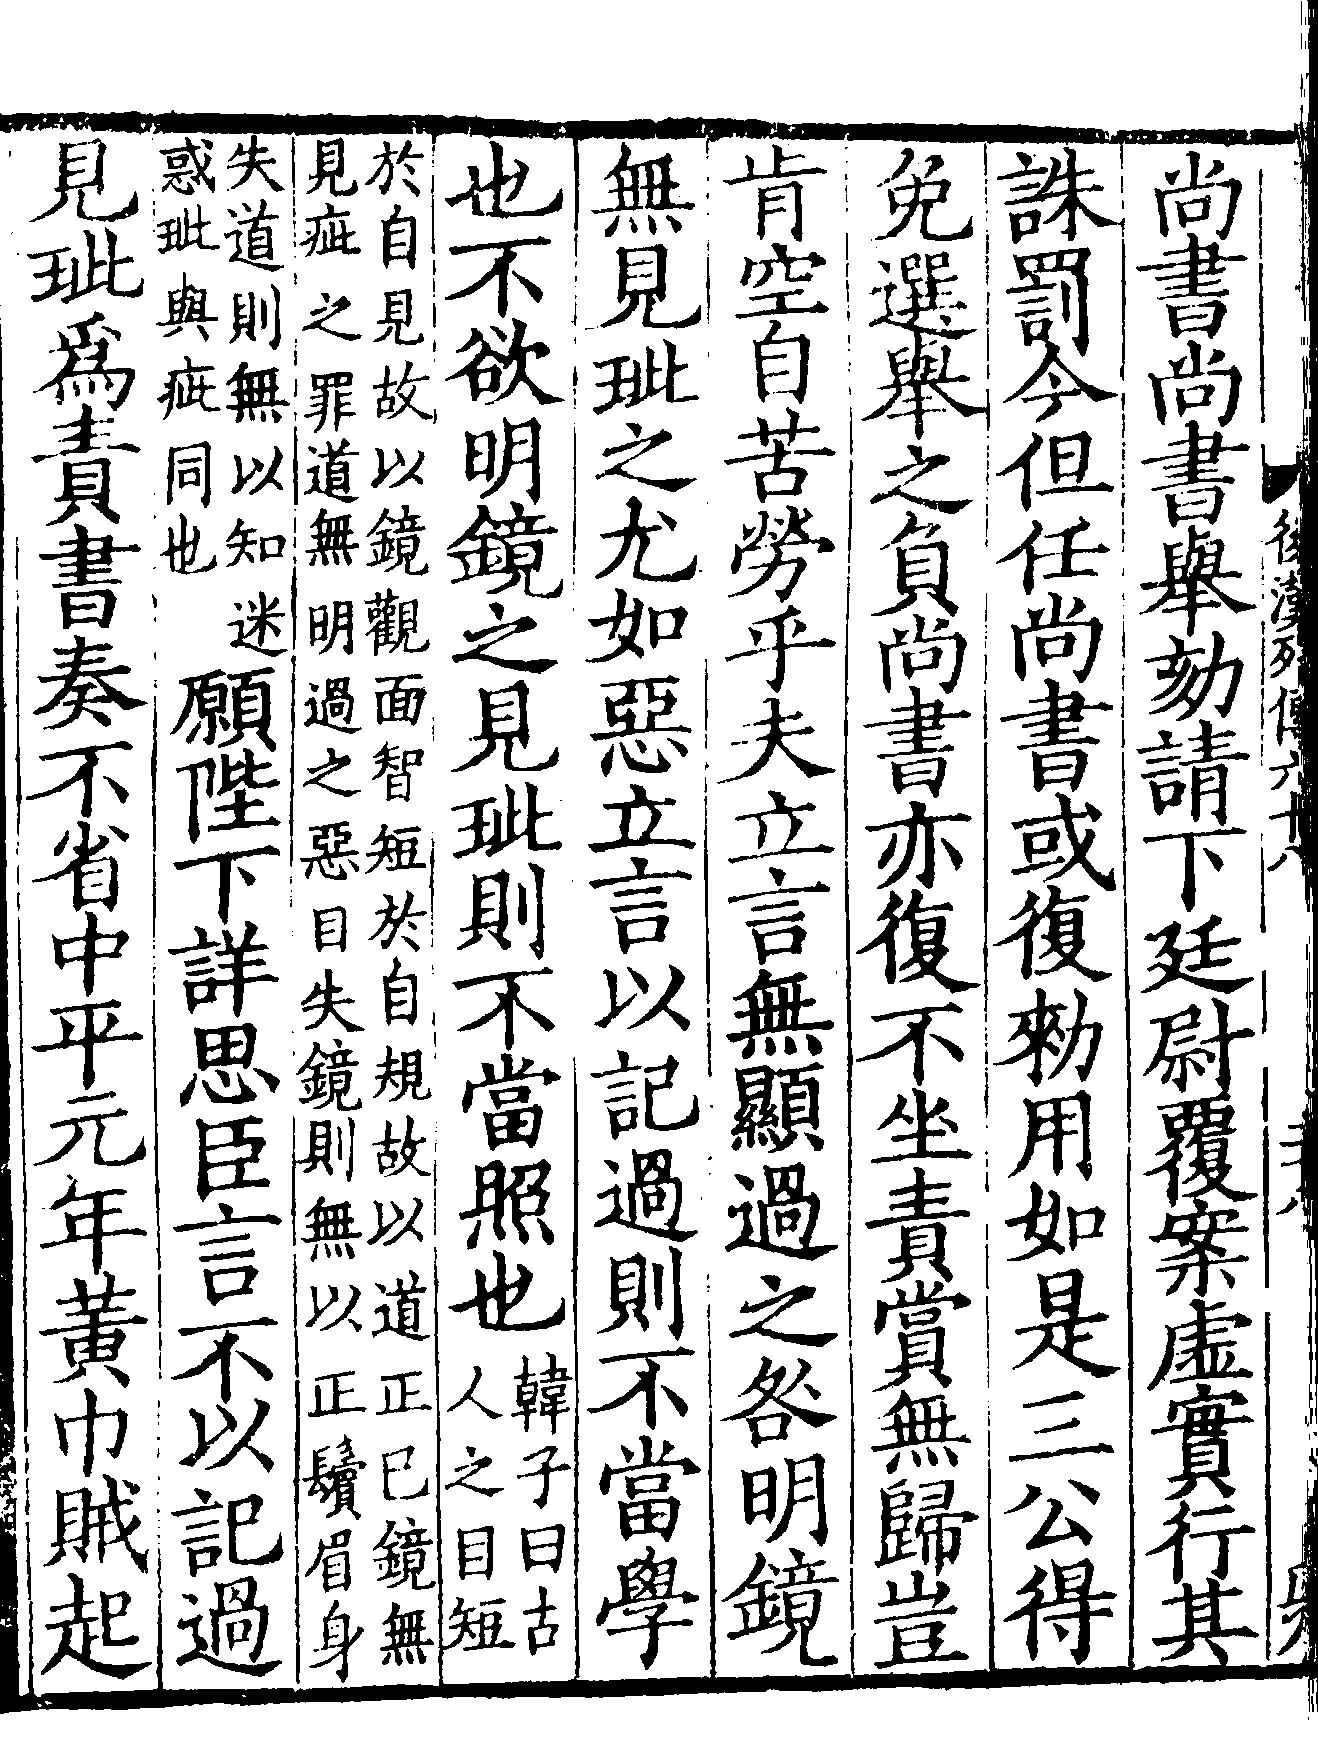 後漢列傳六十八
尚書尚書舉劾請下廷尉覆案虛實行其
誅罰今但任尚書或復勑用如是三公得
免選舉之負尚書亦復不坐責賞無歸豈
肯空自苦勞乎夫立言無顯過之咎明鏡
無見玼之尤如惡立言以記過則不當學
也不欲明鏡之見玼則不當照也
韓子曰古
人之目短
於自見故以鏡觀面智短於自規故以道正已鏡無
見疵之罪道無明過之惡目失鏡則無以正鬚眉身
失道則無以知迷
惑玼與疵同也
願陛下詳思臣言不以記過
見玼爲責書奏不省中平元年黃巾賊起